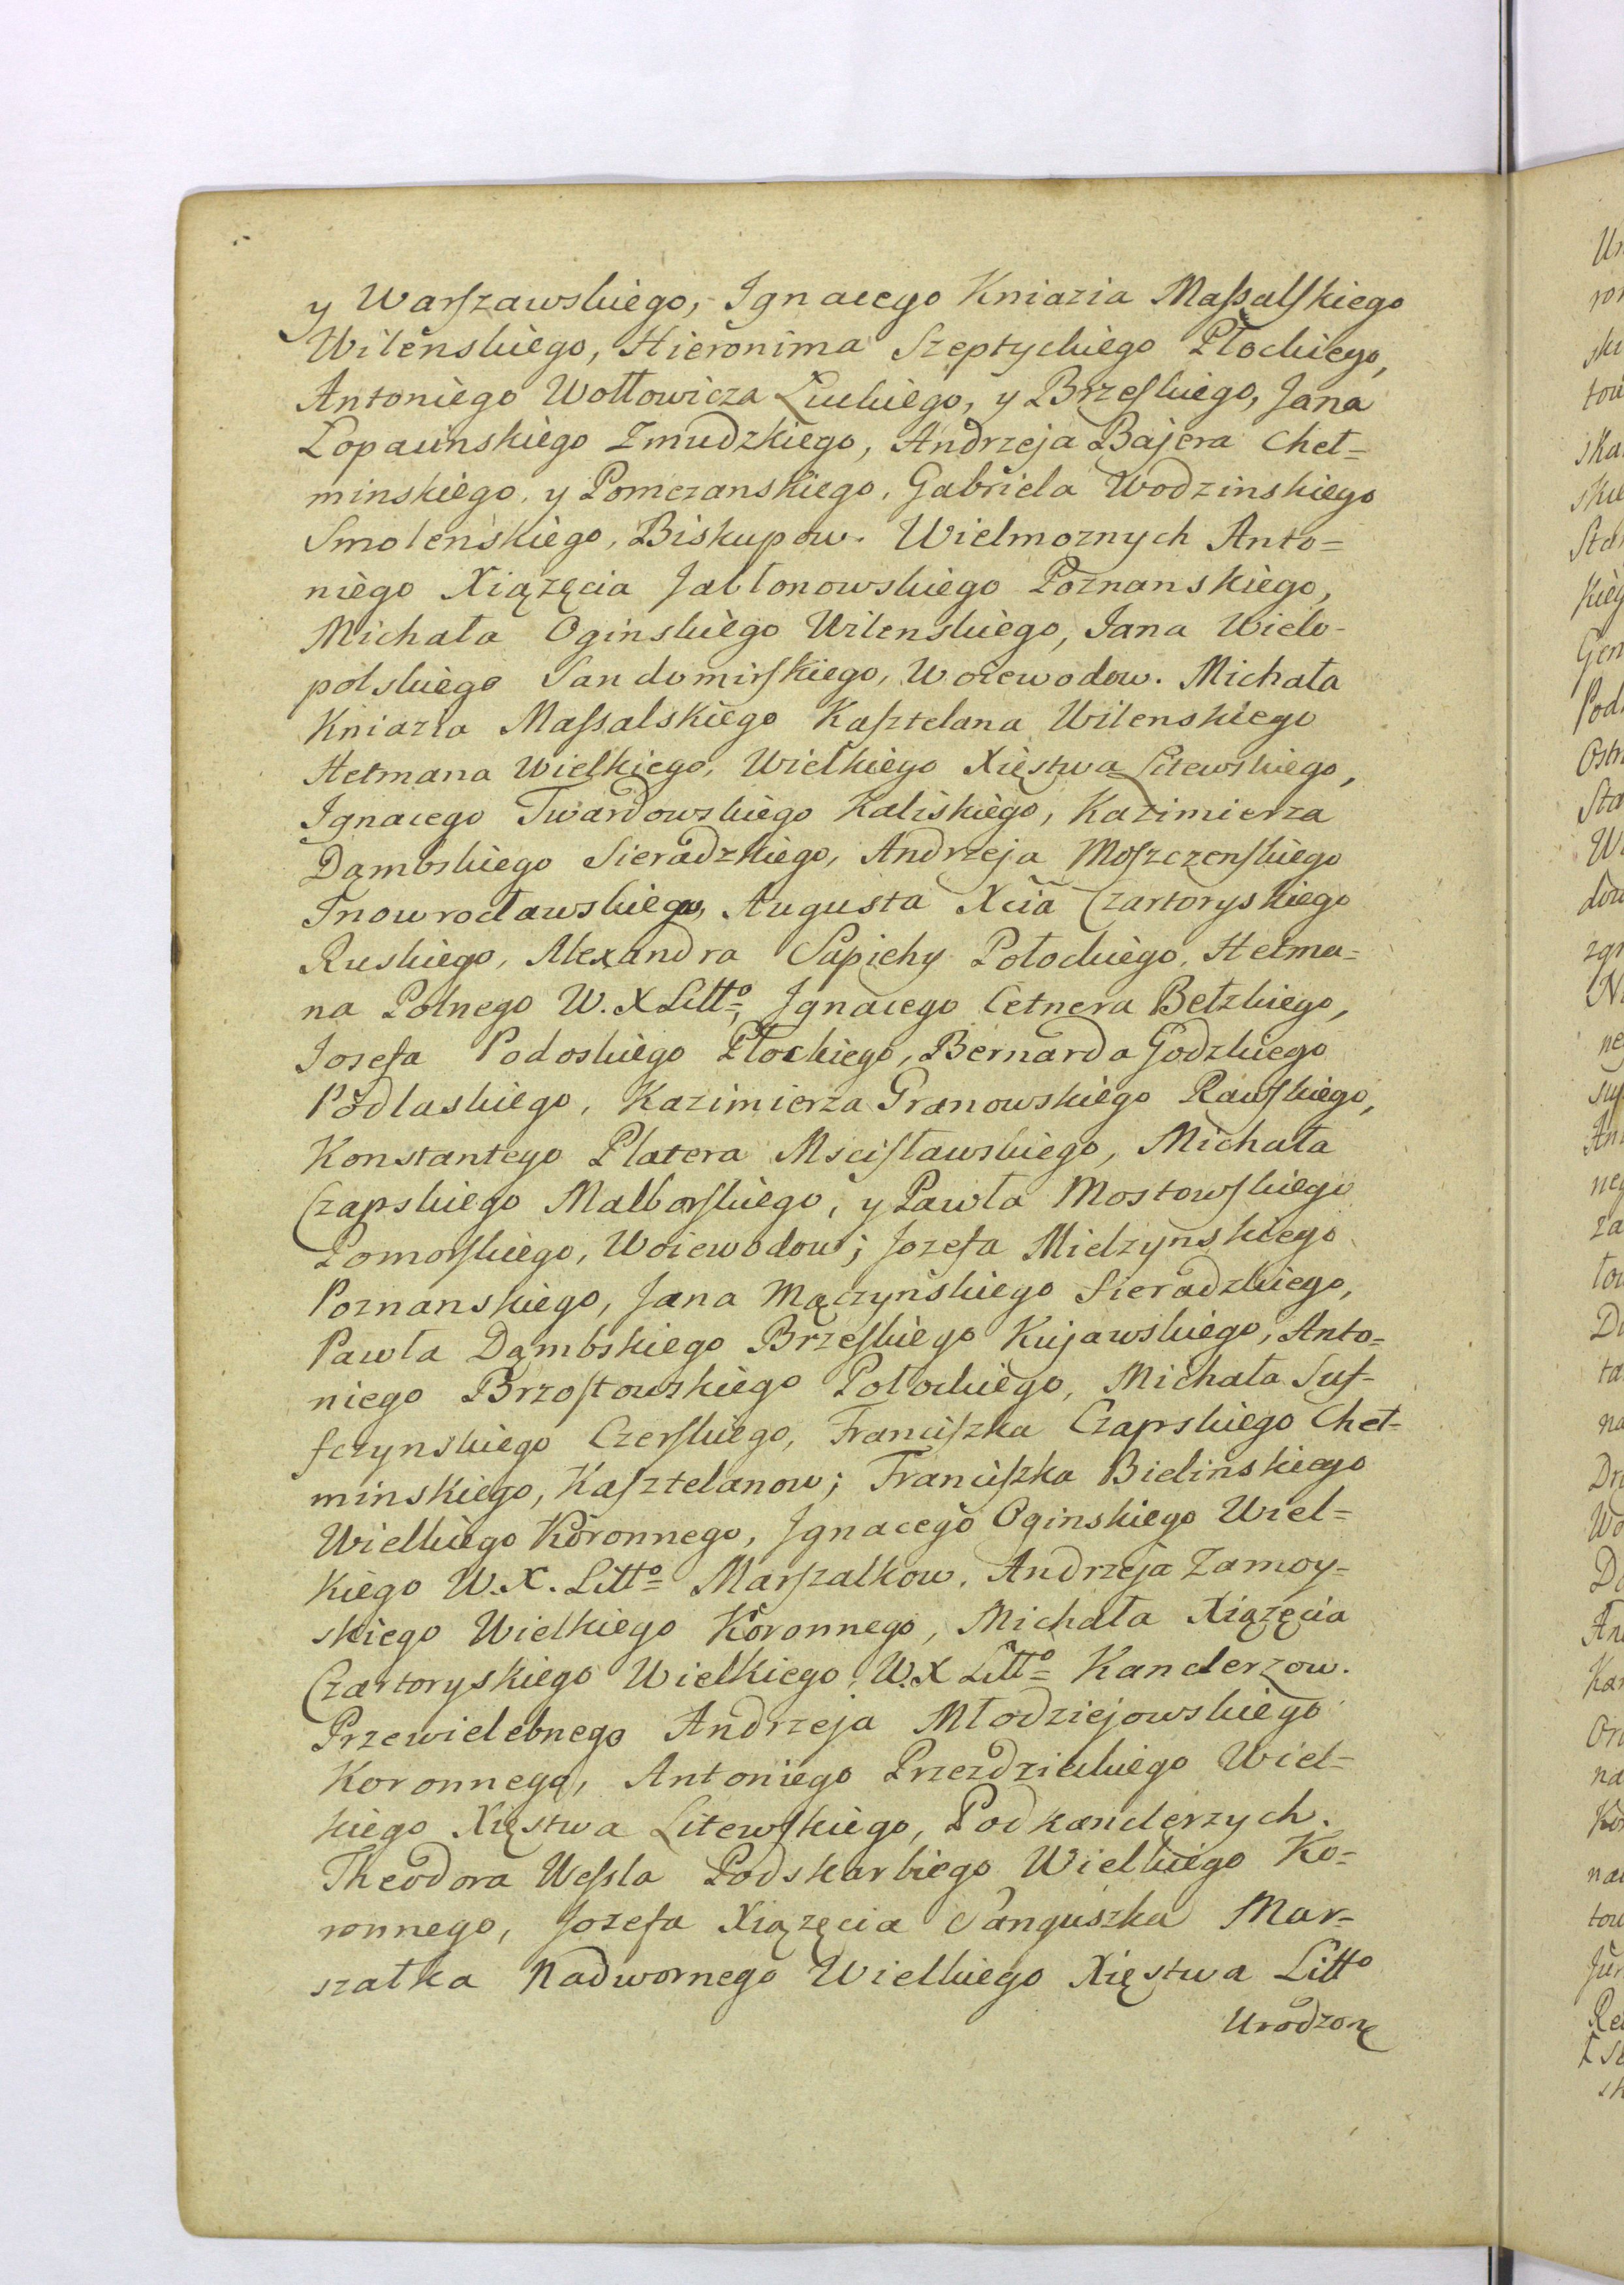 y Warszawskiego, Ignacego Kniazia Massalskiego
Wilenskiego, Hieronima Szeptyckiego Płockiego,
Antoniego Wołłowicza Łuckiego, y Brzeskiego, Jana
Łopacinskiego Zmudzkiego, Andrzeja Bajera Cheł=
minskiego, y Pomezanskiego, Gabriela Wodzinskiego
Smolenskiego, Biskupow. Wielmoznych Anto=
niego Xiązęcia Jabłonowskiego Poznanskiego,
Michała Oginskiego Wilenskiego, Jana Wielo-
polskiego Sandomirskiego, Woiewodow. Michała
Kniazia Massalskiego Kasztelana Wilenskiego
Hetmana Wielkiego, Wielkiego Xięstwa Litewskiego,
Ignacego Twardowskiego Kaliskiego, Kazimierza
Dąmbskiego Sieradzkiego, Andrzeja Moszczenskiego
Inowrocławskiego, Augusta Xcia Czartoryskiego
Ruskiego, Alexandra Sapiehy Połockiego, Hetma=
na Polnego W. X Litt⁰, Ignacego Cetnera Bełzkiego,
Josefa Podoskiego Płockiego, Bernarda Godzkiego
Podlaskiego, Kazimierza Granowskiego Rawskiego,
Konstantego Platera Mscisławskiego, Michała
Czapskiego Malborskiego, y Pawła Mostowskiego
Pomorskiego, Woiewodow; Jozefa Mielzynskiego
Poznanskiego, Jana Mączynskiego Sieradzkiego,
Pawła Dąmbskiego Brzeskiego Kujawskiego, Anto=
niego Brzostowskiego Połockiego, Michała Suf-
fczynskiego Czerskiego, Franciszka Czapskiego Cheł-
minskiego, Kasztelanow; Franciszka Bielinskiego
Wielkiego Koronnego, Ignacego Oginskiego Wiel=
kiego W. X. Litt⁰ Marszałkow. Andrzeja Zamoy-
skiego Wielkiego Koronnego, Michała Xiązęcia
Czartoryskiego Wielkiego W. X Litt⁰ Kanclerzow.
Przewielebnego Andrzeja Młodziejowskiego
Koronnego, Antoniego Przezdzieckiego Wiel=
kiego Xięstwa Litewskiego, Podkanclerzych.
Theodora Wessla Podskarbiego Wielkiego Ko=
ronnego, Jozefa Xiązęcia Sanguszka Mar-
szałka Nadwornego Wielkiego Xięstwa Litt⁰
Urodzone